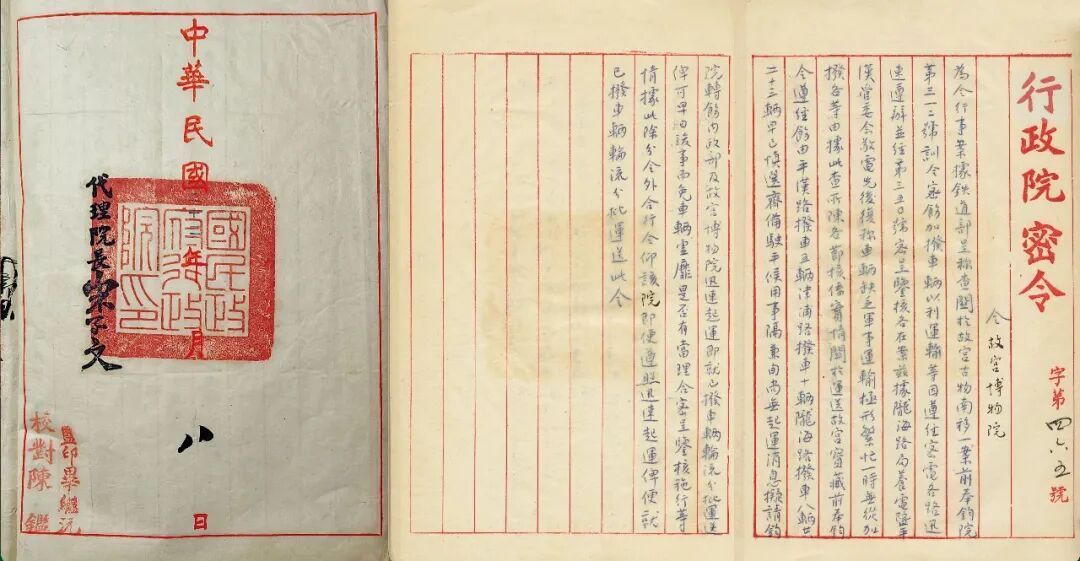 行政院密令
字第四六五號
令故宮博物院
為令行事案據鉄道部呈称查關於故宮古物南移一案前奉鈞院
第三一二號訓令密飭加撥車輛以利運輸等因遵經密電各路迅
速遵辦並經第三五〇號密呈鑒核各在案茲據隴海路局養電
漢管委会敬電先後復称車輛缺乏軍事運輸極形繁忙一時無從加
撥各等由據此查所陳各節核係實情關於運送故宮寶藏前奉鈞
令遵經飭由平漢路撥車五輛津浦路撥車十輛隴海路撥車八輛共
二十三輛早已慎選齊備駛平候用事隔兼旬尚無起運消息擬請鈞
院轉飭内政部及故宮博物院迅速起運即就已撥車輛輪流分批運送
俾可早日竣事而免車輛虛靡是否有當理合密呈鑒核施行等
情據此除分令外合行令仰該院即便遵照迅速起運俾便就
已撥車輛輪流分批運送此令
中華民國年月八日
國民政府行政院印
代理院長宋子文
監印畢繼沅
校對陳鑑